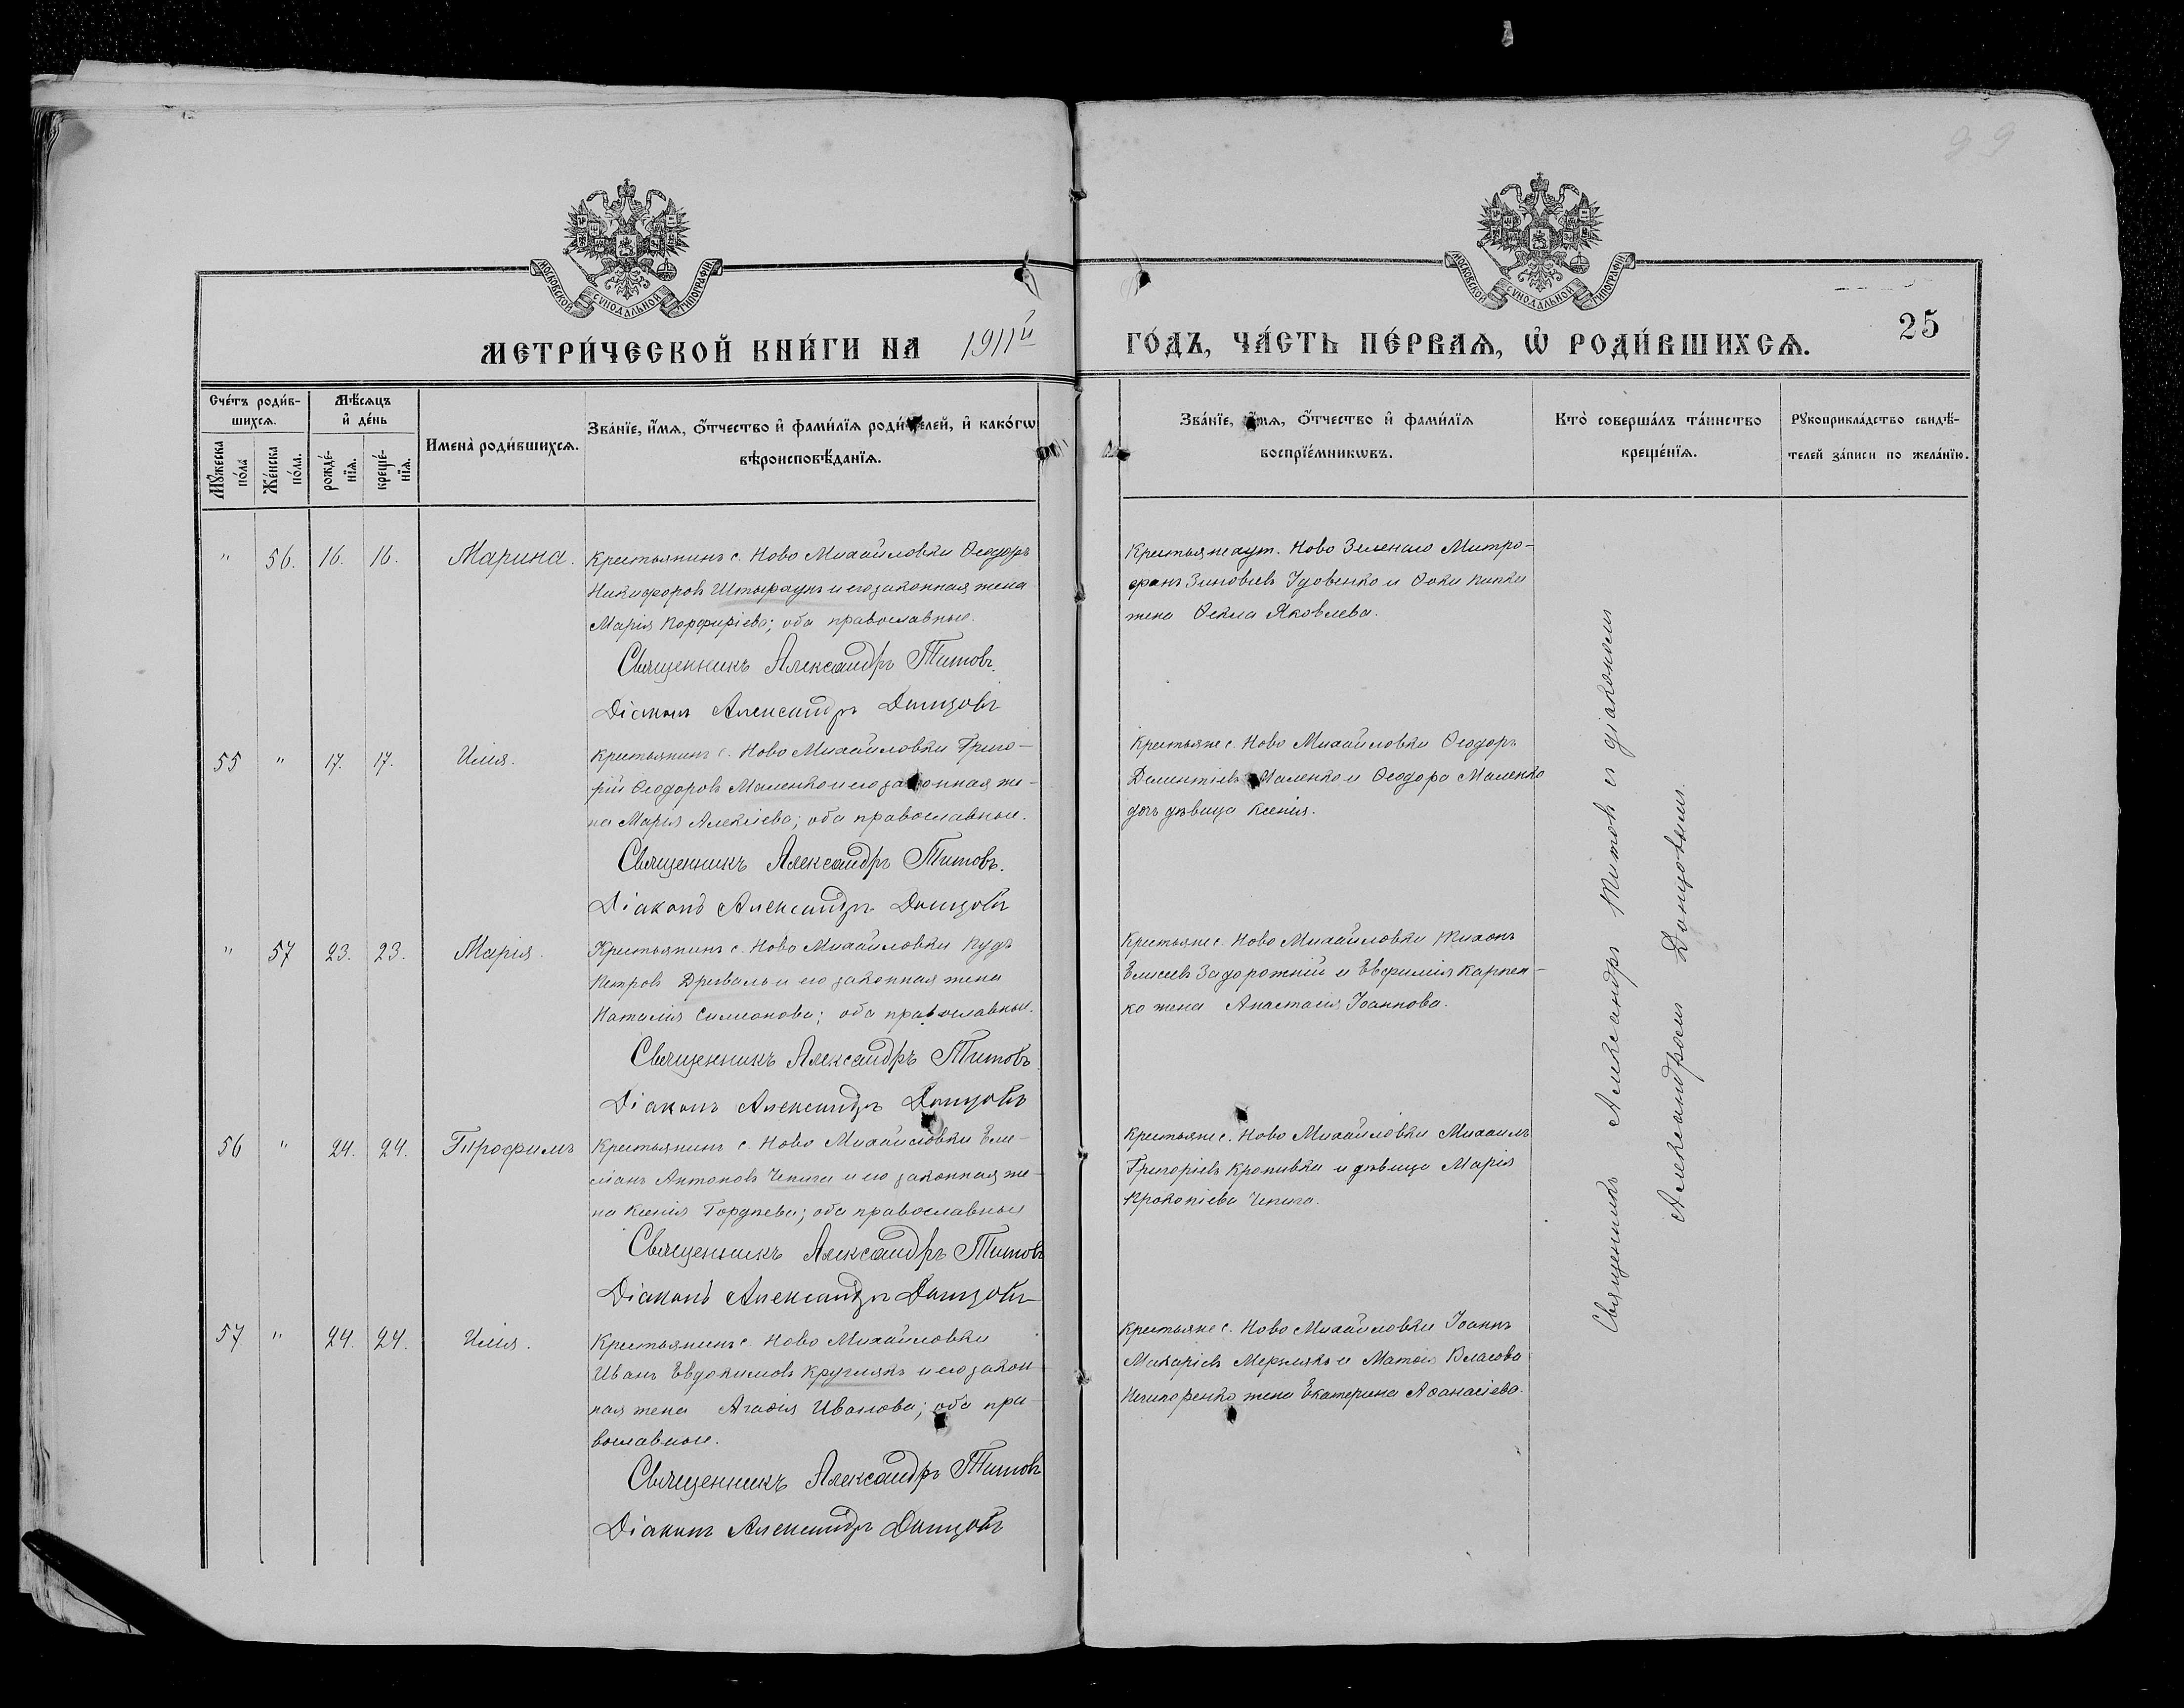 99
МОСКОВСКОЙ СѴНОДАЛЬНОЙ ТИПОГРАФІИ
МОСКОВСКОЙ СѴНОДАЛЬНОЙ ТИПОГРАФІИ
МЕТРИ́ЧЕСКОЙ КНИ́ГИ НА 1911й ГО́ДЪ, ЧА́СТЬ ПЕ́РВАѦ, Ѡ РОДИ́ВШИХСѦ. 25
Сче́тъ роди́в-
шихсѧ.
Мѹ́жеска по́ла
Же́нска по́ла.
Мѣ́сѧцъ
и де́нь
рожде́-
нїѧ.
креще́-
нїѧ.
Имена̀ роди́вшихсѧ.
Зва́нїе, и́мѧ, о́тчество и фами́лїѧ роди́телей, и како́гѡ
вѣроисповѣ́данїѧ.
Зва́нїе, и́мѧ, о́тчество и фами́лїѧ
воспрїе́мникѡвъ.
Кто̀ соверша́лъ та́инство
креще́нїѧ.
Рѹкоприкла́дство свидѣ́-
телей за́писи по жела́нїю.
" 56. 16. 16. Марина.
Крестьянинъ с. Ново Михайловки Ѳеодоръ
Никифоровъ Штырхунъ и его законная жена
Марія Порфиріева; оба православные.
Священникъ Александръ Титовъ.
Діаконъ Александръ Донцовъ
Крестьяне хут. Ново Зеленаго Митро-
фанъ Зиновіевъ Удовенко и Ѳоки Кипки
жена Ѳекла Яковлева.
55 " 17. 17. Илія.
Крестьянинъ с. Ново Михайловки Григо-
рій Ѳеодоровъ Маленко и его законная же-
на Марія Алексіева; оба православные.
Священникъ Александръ Титовъ.
Діаконъ Александръ Донцовъ
Крестьяне с. Ново Михайловки Ѳеодоръ
Дементіевъ Маленко и Ѳеодора Маленко
дочь дѣвица Ксенія.
" 57 23. 23. Марія.
Крестьянинъ с. Ново Михайловки Іуда
Петровъ Древаль и его законная жена
Наталія Симеонова; оба православные.
Священникъ Александръ Титовъ
Діаконъ Александръ Донцовъ
Крестьяне с. Ново Михайловки Тихонъ
Елисеевъ Задорожній и Евфимія Карпен-
ко жена Анастасія Іоаннова.
56 " 24. 24. Трофимъ
Крестьянинъ с. Ново Михайловки Еме-
ліанъ Антоновъ Чепига и его законная же-
на Ксенія Гордѣева; оба православные
Священникъ Александръ Титовъ
Діаконъ Александръ Донцовъ
Крестьяне с. Ново Михайловки Михаилъ
Григоріевъ Кропивка и дѣвица Марія
Прокопіева Чепига.
57 " 24. 24. Илія.
Крестьянинъ с. Ново Михайловки
Иванъ Евдокимовъ Круглякъ и его закон-
ная жена Агафія Иванова; оба пра-
вославные.
Священникъ Александръ Титовъ
Діаконъ Александръ Донцовъ
Крестьяне с. Ново Михайловки Іоаннъ
Макаріевъ и Матѳія Власова
Нечипоренко жена Екатерина Аѳанасіева.
Священникъ Александръ Титовъ съ діакономъ
Александромъ Донцовымъ.